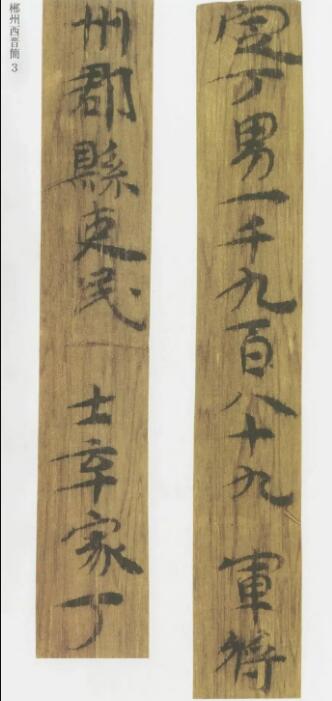 郴州西晉簡 3
定丁男一千九百八十九 軍將
州郡縣吏民 士卒家丁